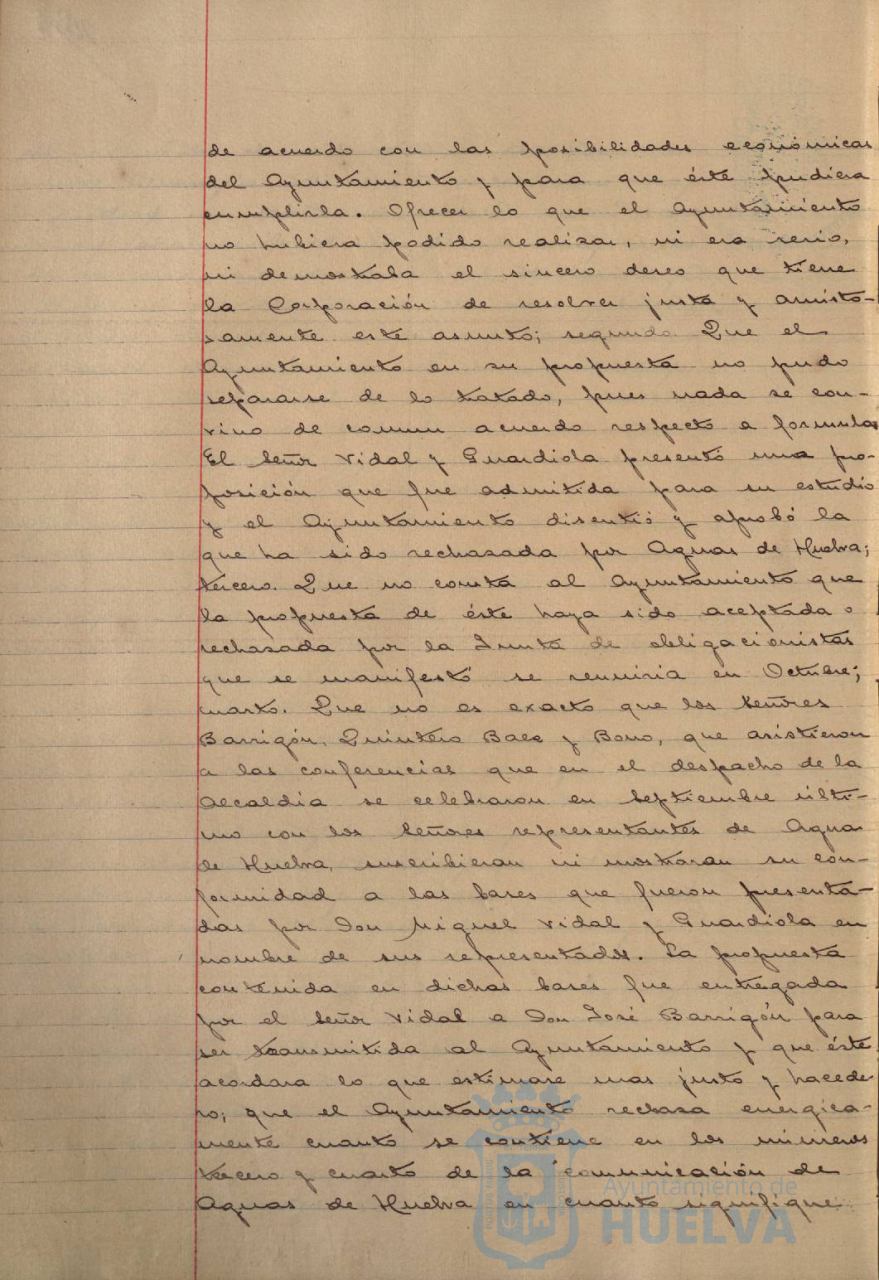 de acuerdo con las posibilidades económicas
del Ayuntamiento y para que éste pudiera
cumplirla. Ofrecer lo que el Ayuntamiento
no hubiera podido realizar, ni era serio,
ni demostraba el sincero deseo que tiene
la Corporación de resolver justa y amisto-
samente este asunto; segundo. Que el
Ayuntamiento en su propuesta no pudo
separarse de lo tratado, pues nada se con-
vino de comun acuerdo respecto a formulas
El Señor Vidal y Guardiola presentó una pro-
posición que fue admitida para su estudio
y el Ayuntamiento discutió y aprobó la
que ha sido rechasada por Aguas de Huelva;
tercero. Que no consta al Ayuntamiento que
la propuesta de éste haya sido aceptada o
rechasada por la Junta de obligacionistas
que se manifestó se reuniria en Octubre;
cuarto. Que no es exacto que los Señores
Barrigón, Quintero Baez y Bono, que asistieron
a las conferencias que en el despacho de la
Alcaldia se celebraron en Septiembre últi-
mo con los Señores representantes de Aguas
de Huelva, suscribieran ni mostraran su con-
formidad a las bases que fueron presenta-
das por Don Miguel Vidal y Guardiola en
nombre de sus representados. La propuesta
contenida en dichas bases fue entregada
por el Señor Vidal a Don José Barrigón para
ser transmitida al Ayuntamiento y que éste
acordara lo que estimare mas justo y hacede-
ro; que el Ayuntamiento rechasa energica-
mente cuanto se contiene en los números
tercero y cuarto de la comunicación de
Aguas de Huelva en cuanto signifique
Ayuntamiento de
HUELVA